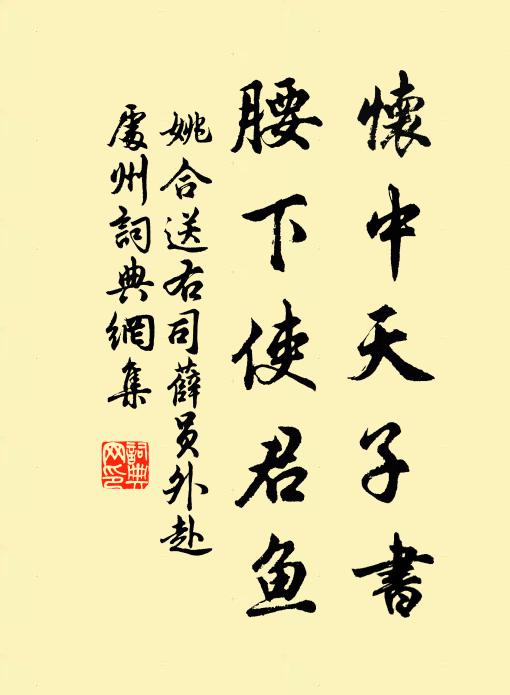 懷中天子書
腰下使君鱼
姚合送右司薛员外赴
處州詞典網集
詞典網印